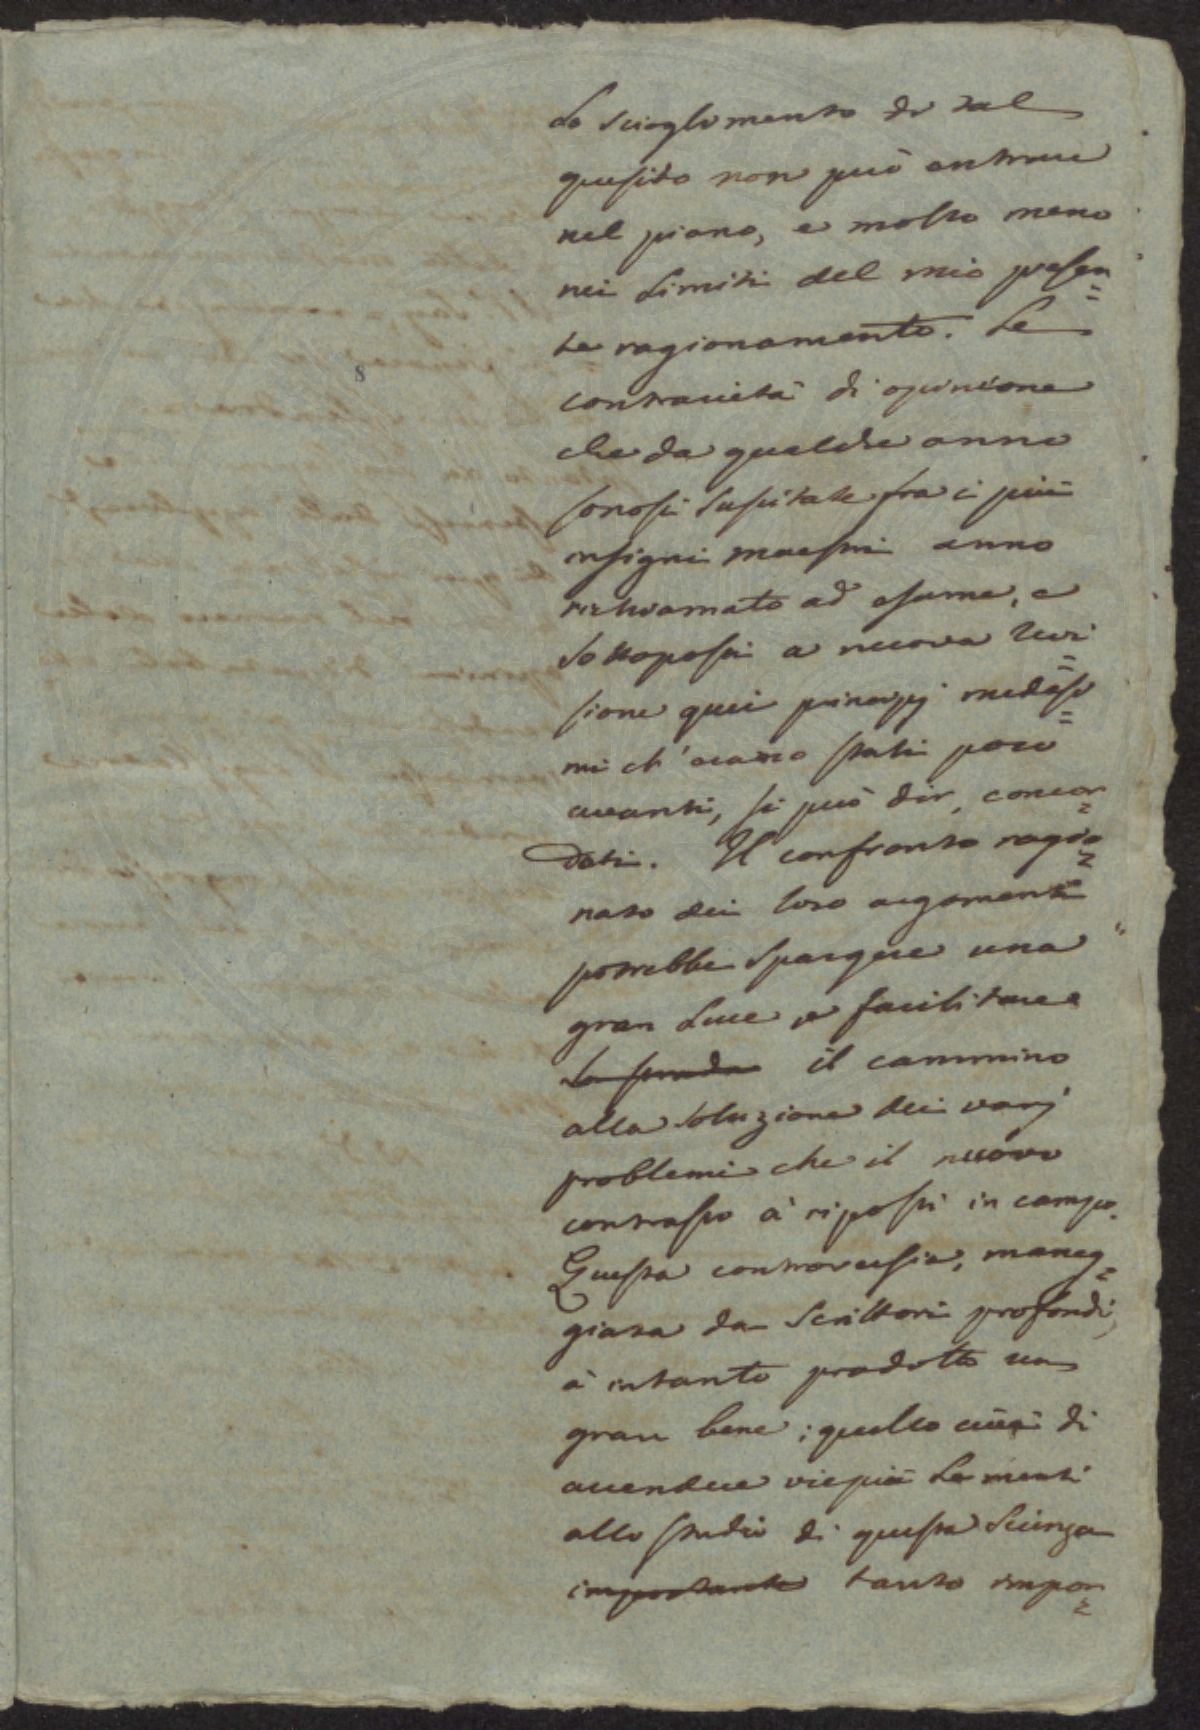 Lo scioglimento di tal
quesito non può entrare
nel piano, e molto meno
nei limiti del mio presen=
te ragionamento. Le
contrarietà di opinione
che da qualche anno
sonosi suscitate fra i più
insigni maestri anno
richiamato ad esame, e
sottoposti a nuova revi=
sione quei principj medesi=
mi ch'erano stati poco
avanti, si può dir, concor=
dati. Il confronto ragio=
nato dei loro argomenti
potrebbe spargere una
gran luce e facilitare
la strada il cammino
alla soluzione dei varj
problemi che il nuovo
contrasto à riposti in campo.
Questa controversia, maneg=
giata da Scrittori profondi,
à intanto prodotto un
gran bene; quello cioè di
accendere viepiù le menti
allo studio di questa scienza
importante tanto impor=
8